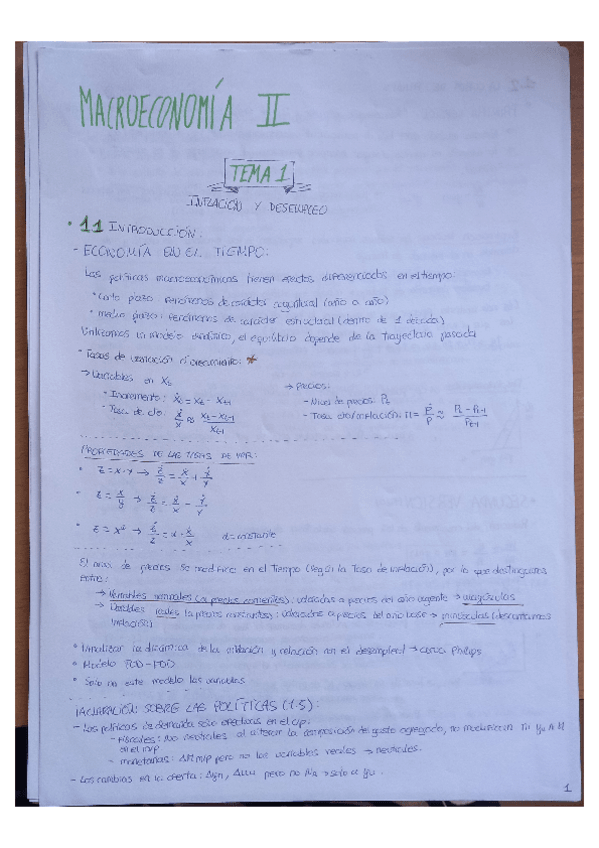 MACROECONOMÍA II
TEMA 1
INFLACIÓN Y DESEMPLEO
• 1.1 INTRODUCCIÓN:
- ECONOMÍA EN EL TIEMPO:
Las políticas macroeconómicas tienen efectos diferenciados en el tiempo:
• corto plazo: fenómenos de carácter coyuntural (año a año)
• medio plazo: fenómenos de carácter estructural (dentro de 1 década)
Utilizamos un modelo dinámico, el equilibrio depende de la trayectoria pasada
• Tasas de variación o crecimiento: *
→ Variables en Xt → Precios:
• Incremento: Ẋt = Xt - Xt-1 - Nivel de precios: Pt
- Tasa de cto: Ẋ/X ≈ (Xt - Xt-1)/Xt-1 - Tasa cto/inflación: π = Ṗ/P ≈ (Pt - Pt-1)/Pt-1
PROPIEDADES DE LAS TASAS DE VAR:
• Z = X·Y → Ż/Z = Ẋ/X + Ẏ/Y
• Z = X/Y → Ż/Z = Ẋ/X - Ẏ/Y
• Z = X^α → Ż/Z = α·Ẋ/X α = constante
El nivel de precios se modifica en el tiempo (según la Tasa de inflación), por lo que distinguimos
entre:
→ Variables nominales (a precios corrientes): valoradas a precios del año vigente → mayúsculas
→ Variables reales (a precios constantes): valoradas a precios del año base → minúsculas (descontamos
inflación)
• Analizar la dinámica de la inflación y relación con el desempleo → curva Philips
• Modelo
• Solo en este modelo las variables
ACLARACIÓN SOBRE LAS POLÍTICAS (1.5):
- Las políticas de demanda solo efectivas en el c/p:
- Fiscales: No neutrales al alterar la composición de gasto agregado, no modifican
en el m/p
- monetarias: pero no las variables reales → neutrales.
- Los cambios en la oferta: pero no → solo a Yu.
1